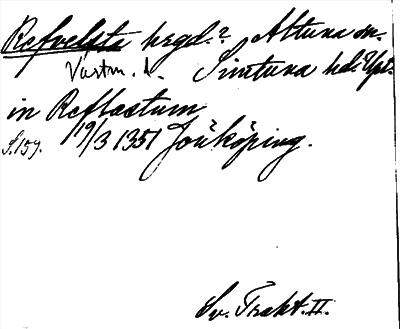 Refvelsta hrgd.? Altuna sn.
Västm. l. Simtuna hd. Upl.
in Reflastum
S. 159. 19/3 1351 Jönköping.
Sv. Trakt. II.